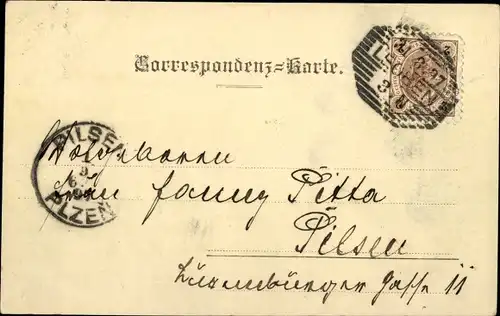 Correspondenz-Karte.
PILSEN
PLZEŇ
Wolgeboren
Frau Fanny Pitta
Pilsen
Luxemburger Gasse 11